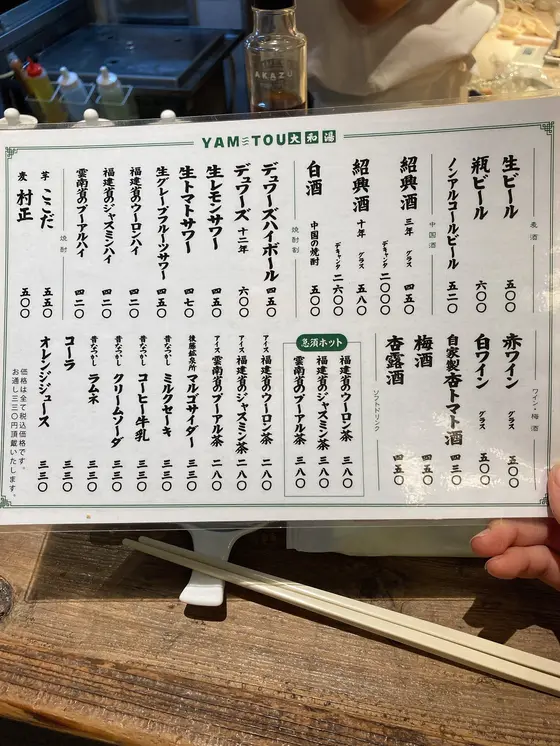 AKAZU
YAM TOU 大和湯
麦酒
生ビール 五〇〇
瓶ビール 六〇〇
ノンアルコールビール 五二〇
中国酒
紹興酒 三年 グラス 五五〇
デキャンタ 二〇〇〇
紹興酒 十年 グラス 五八〇
デキャンタ 二六〇〇
白酒 中国の焼酎 五〇〇
焼酎割
デュワーズハイボール 四五〇
デュワーズ 十二年 六〇〇
生レモンサワー 四五〇
生トマトサワー 四七〇
生グレープフルーツサワー 四五〇
福建省のウーロンハイ 四二〇
福建省のジャスミンハイ 四二〇
雲南省のプーアルハイ 四二〇
焼酎
芋 こごだ 五五〇
麦 村正 五〇〇
ワイン・梅酒
赤ワイン グラス 五〇〇
白ワイン グラス 五〇〇
自家製杏トマト酒 四三〇
梅酒 四五〇
杏露酒 四五〇
ソフトドリンク
急須ホット
福建省のウーロン茶 三八〇
福建省のジャスミン茶 三八〇
雲南省のプーアル茶 三八〇
アイス 福建省のウーロン茶 二八〇
アイス 福建省のジャスミン茶 二八〇
アイス 雲南省のプーアル茶 二八〇
後藤鉱泉所 マルゴサイダー 三三〇
昔なつかし ミルクセーキ 三三〇
昔なつかし コーヒー牛乳 三三〇
昔なつかし クリームソーダ 三三〇
昔なつかし ラムネ 三三〇
コーラ 三三〇
オレンジジュース 三三〇
価格は全て税込価格です。
お通し三三〇円頂戴いたします。